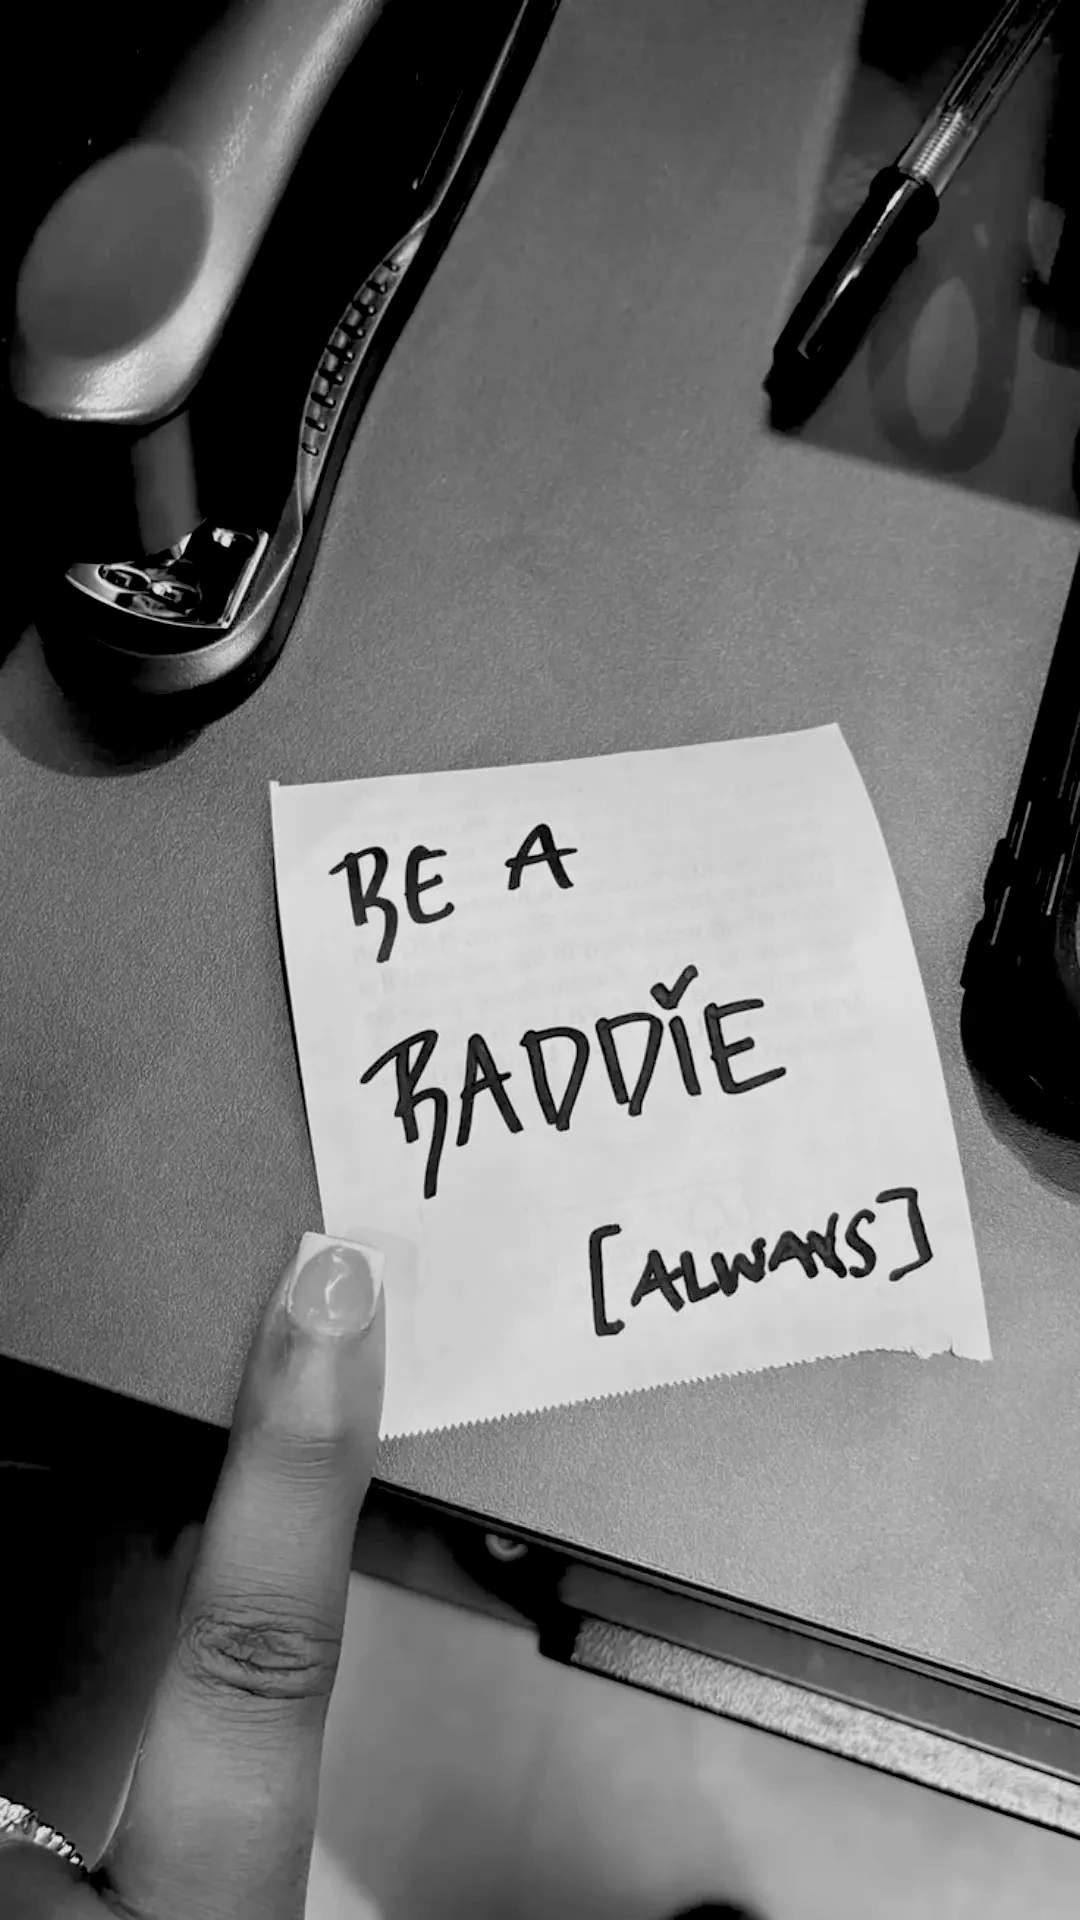 BE A
BADDIE
[ALWAYS]